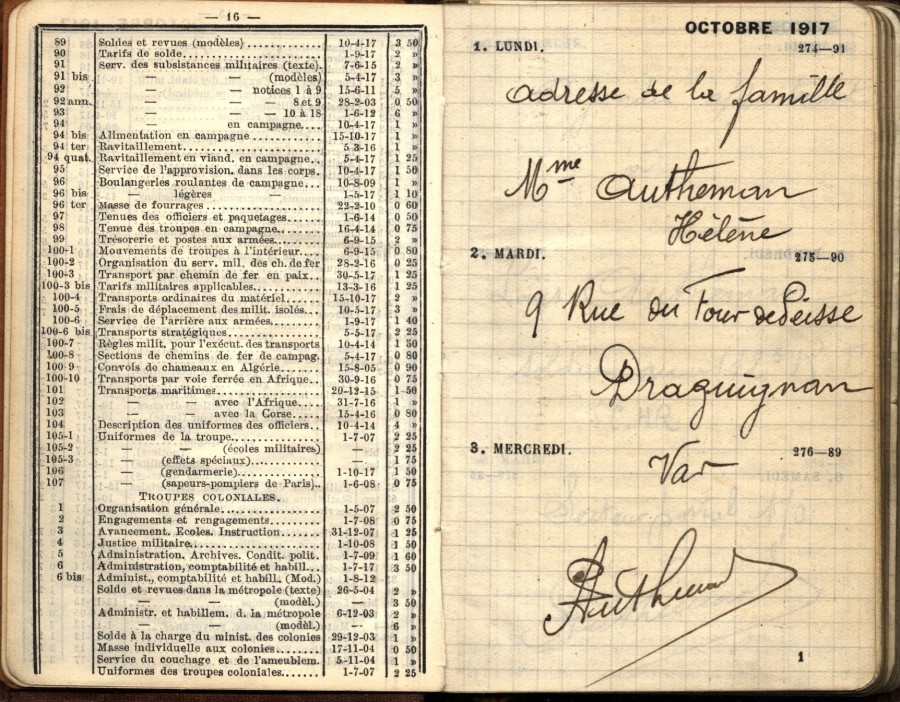 — 16 —
89 Soldes et revues (modèles) 10-4-17 3 50
90 Tarifs de solde 1-9-17 2 »
91 Serv. des subsistances militaires (texte). 7-6-15 2 »
91 bis — — (modèles) 5-4-17 3 »
92 — — notices 1 à 9 15-6-11 5 »
92 ann. — — 8 et 9 28-2-03 0 50
93 — — — 10 à 18 1-6-12 6 »
94 — en campagne 10-4-17 1 »
94 bis Alimentation en campagne 15-10-17 1 »
94 ter Ravitaillement 5 3-16 1 »
94 quat. Ravitaillement en viand. en campagne.. 5-4-17 1 25
95 Service de l'approvision. dans les corps. 10-4-17 1 50
96 Boulangeries roulantes de campagne... 10-8-09 1 »
96 bis — légères — 1-5-17 1 10
96 ter Masse de fourrages 22-2-10 0 60
97 Tenues des officiers et paquetages 1-6-14 0 50
98 Tenue des troupes en campagne 16-4-14 0 75
99 Trésorerie et postes aux armées 6-9-15 2 »
100-1 Mouvements de troupes à l'intérieur 6-9-15 0 80
100-2 Organisation du serv. mil. des ch. de fer 28-2-16 0 25
100-3 Transport par chemin de fer en paix 30-5-17 1 25
100-3 bis Tarifs militaires applicables 13-3-16 1 25
100-4 Transports ordinaires du matériel 15-10-17 2 »
100-5 Frais de déplacement des milit. isolés... 10-5-17 3 »
100-6 Service de l'arrière aux armées 1-9-17 1 40
100-6 bis Transports stratégiques 5-5-17 2 25
100-7 Règles milit. pour l'exécut. des transports 10-4-14 1 50
100-8 Sections de chemins de fer de campag. 5-4-17 0 80
100-9 Convois de chameaux en Algérie 15-8-05 0 90
100-10 Transports par voie ferrée en Afrique.. 30-9-16 0 75
101 Transports maritimes 20-12-15 1 50
102 — — avec l'Afrique 31-7-16 1 »
103 — — avec la Corse 15-4-16 0 80
104 Description des uniformes des officiers.. 10-4-14 4 »
105-1 Uniformes de la troupe 1-7-07 2 25
105-2 — — (écoles militaires) — 2 25
105-3 — (effets spéciaux) — 1 75
106 — (gendarmerie) 1-10-17 1 50
107 — (sapeurs-pompiers de Paris).. 1-6-08 0 75
TROUPES COLONIALES.
1 Organisation générale 1-5-07 2 50
2 Engagements et rengagements 1-7-08 0 75
3 Avancement. Ecoles. Instruction 31-12-07 1 25
4 Justice militaire 1-10-08 1 50
5 Administration. Archives. Condit. polit. 1-7-09 1 60
6 Administration, comptabilité et habill... 1-7-17 3 50
6 bis Administ., comptabilité et habill. (Mod.) 1-8-12
Solde et revues dans la métropole (texte) 26-5-04 2 »
— — (modèl.) — 3 50
Administr. et habillem. d. la métropole 6-12-03 2 »
— — (modèl.) — 6 »
Solde à la charge du minist. des colonies 29-12-03 1 »
Masse individuelle aux colonies 17-11-04 0 50
Service du couchage et de l'ameublem. 5-11-04 1 »
Uniformes des troupes coloniales 1-7-07 2 25
OCTOBRE 1917
1. LUNDI. 274—91
adresse de la famille
Mme Autheman
Hélène
2. MARDI. 275—90
9 Rue du Four de
Draguignan
3. MERCREDI. 276—89
Var
Autheman
1